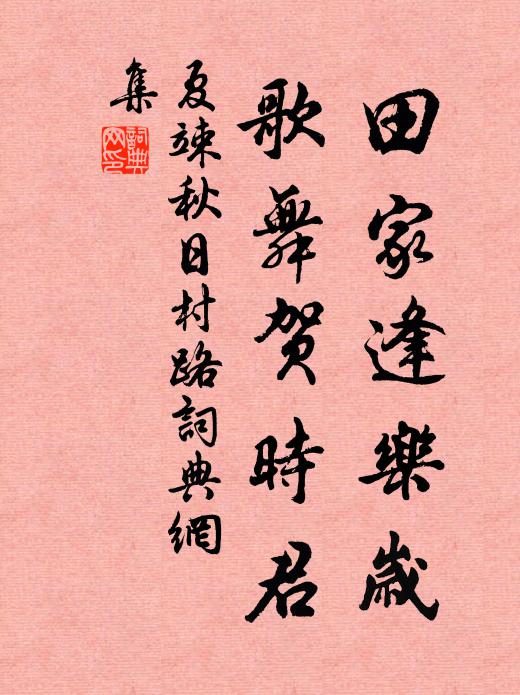 田家逢樂歲
歌舞賀時君
夏竦秋日村路詞典網
集
詞典
網印